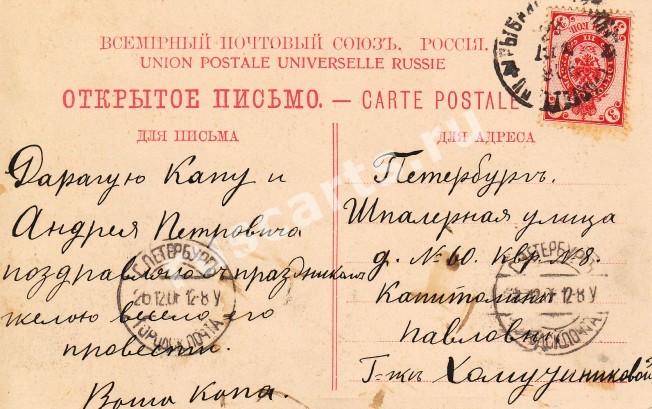 ВСЕМІРНЫЙ ПОЧТОВЫЙ СОЮЗЪ. РОССІЯ.
UNION POSTALE UNIVERSELLE RUSSIE
ОТКРЫТОЕ ПИСЬМО. — CARTE POSTALE
ДЛЯ ПИСЬМА
Дарагую Капу и
Андрея Петровича
поздравляю с праздником
желою весело его
провести.
Ваша Капа.
ДЛЯ АДРЕСА
Петербургъ.
Шпалерная улица
д. № 60. кв. № 8.
Капитолины
Павловны
Г-жъ
С.ПЕТЕРБУРГЪ
12-8 У
ГОРОДСК.ПОЧТА
С.ПЕТЕРБУРГЪ
12-8 У
3
3